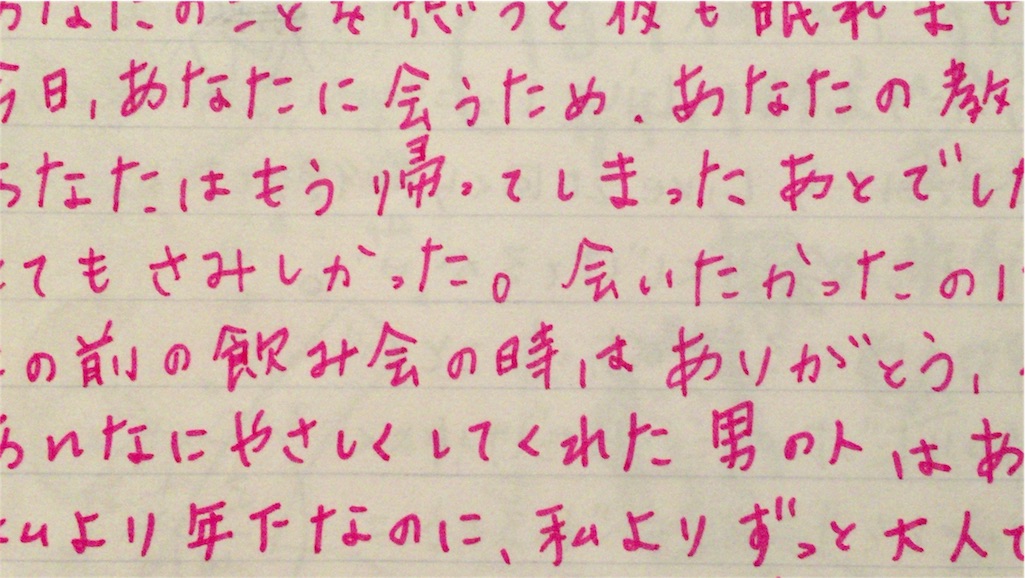 あなたのことを想うと夜も眠れませ
今日、あなたに会うため、あなたの教
あなたはもう帰ってしまったあとでした
とてもさみしかった。会いたかったのに
の前の飲み会の時はありがとう、
あんなにやさしくしてくれた男の人はあ
私より年下なのに、私よりずっと大人で